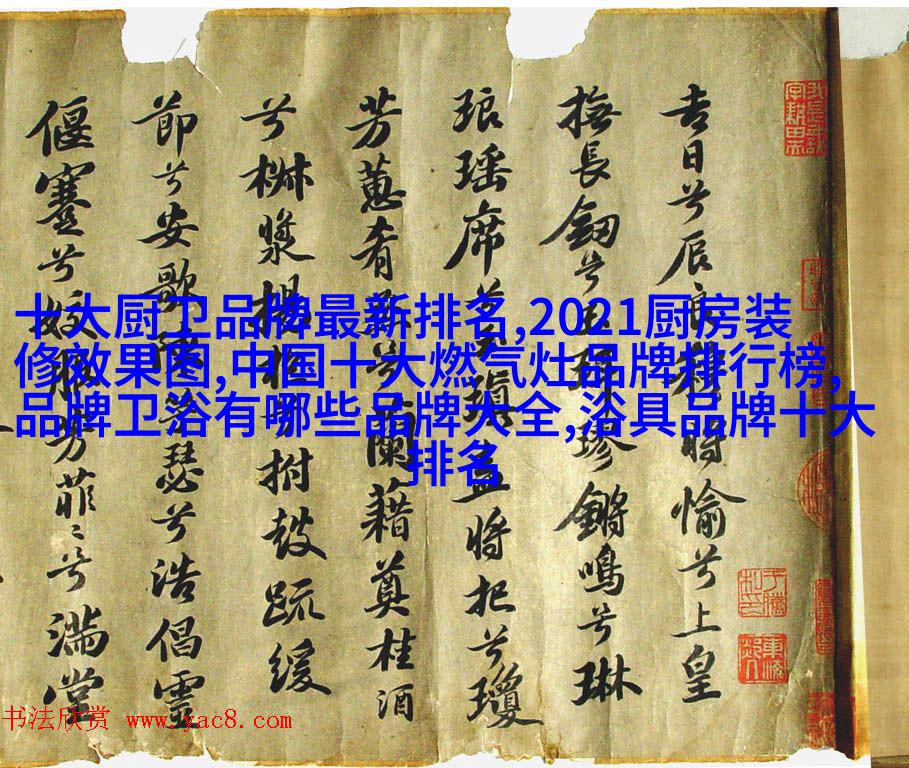 十大厨卫品牌最新排名,2021厨房装
修效果图,中国十大燃气灶品牌排行榜,
品牌卫浴有哪些品牌大全,浴具品牌十大
排名
吉日兮辰良穆將愉兮上皇
撫長劔兮玉珥璆鏘鳴兮琳
琅瑶席兮玉瑱盍將把兮瓊
芳蕙肴蒸兮蘭藉奠桂酒
兮椒漿揚枹兮拊鼓疏緩
節兮安歌陳竽瑟兮浩倡靈
偃蹇兮姣服芳菲〻兮滿堂
书法欣赏 www.yac8.com